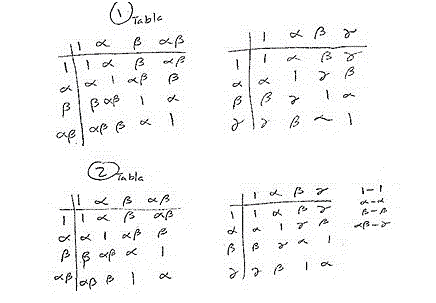 1 Tabla
1 α β αβ
1 1 α β αβ
α α 1 αβ β
β β αβ 1 α
αβ αβ β α 1
1 α β γ
1 1 α β γ
α α 1 γ β
β β γ 1 α
γ γ β α 1
2 Tabla
1 α β αβ
1 1 α β αβ
α α 1 αβ β
β β αβ α 1
αβ αβ β 1 α
1 α β γ
1 1 α β γ
α α 1 γ β
β β γ α 1
γ γ β 1 α
1-1
α-α
β-β
αβ-γ